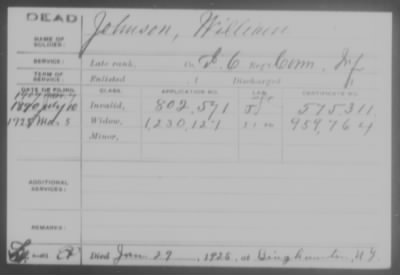 DEAD
NAME OF SOLDIER: Johnson, William
SERVICE: Late rank, Co. D, 6 Reg't Conn. Inf
TERM OF SERVICE: Enlisted , 1 Discharged , 1
DATE OF FILING. CLASS. APPLICATION NO. LAW. CERTIFICATE NO.
1890 July 10 Invalid, 802,571 515,311
1925 Mar. 5 Widow, 1,230,121 959,764
Minor,
ADDITIONAL SERVICES:
REMARKS:
Died Jan. 29, 1925, at Binghamton, N.Y.